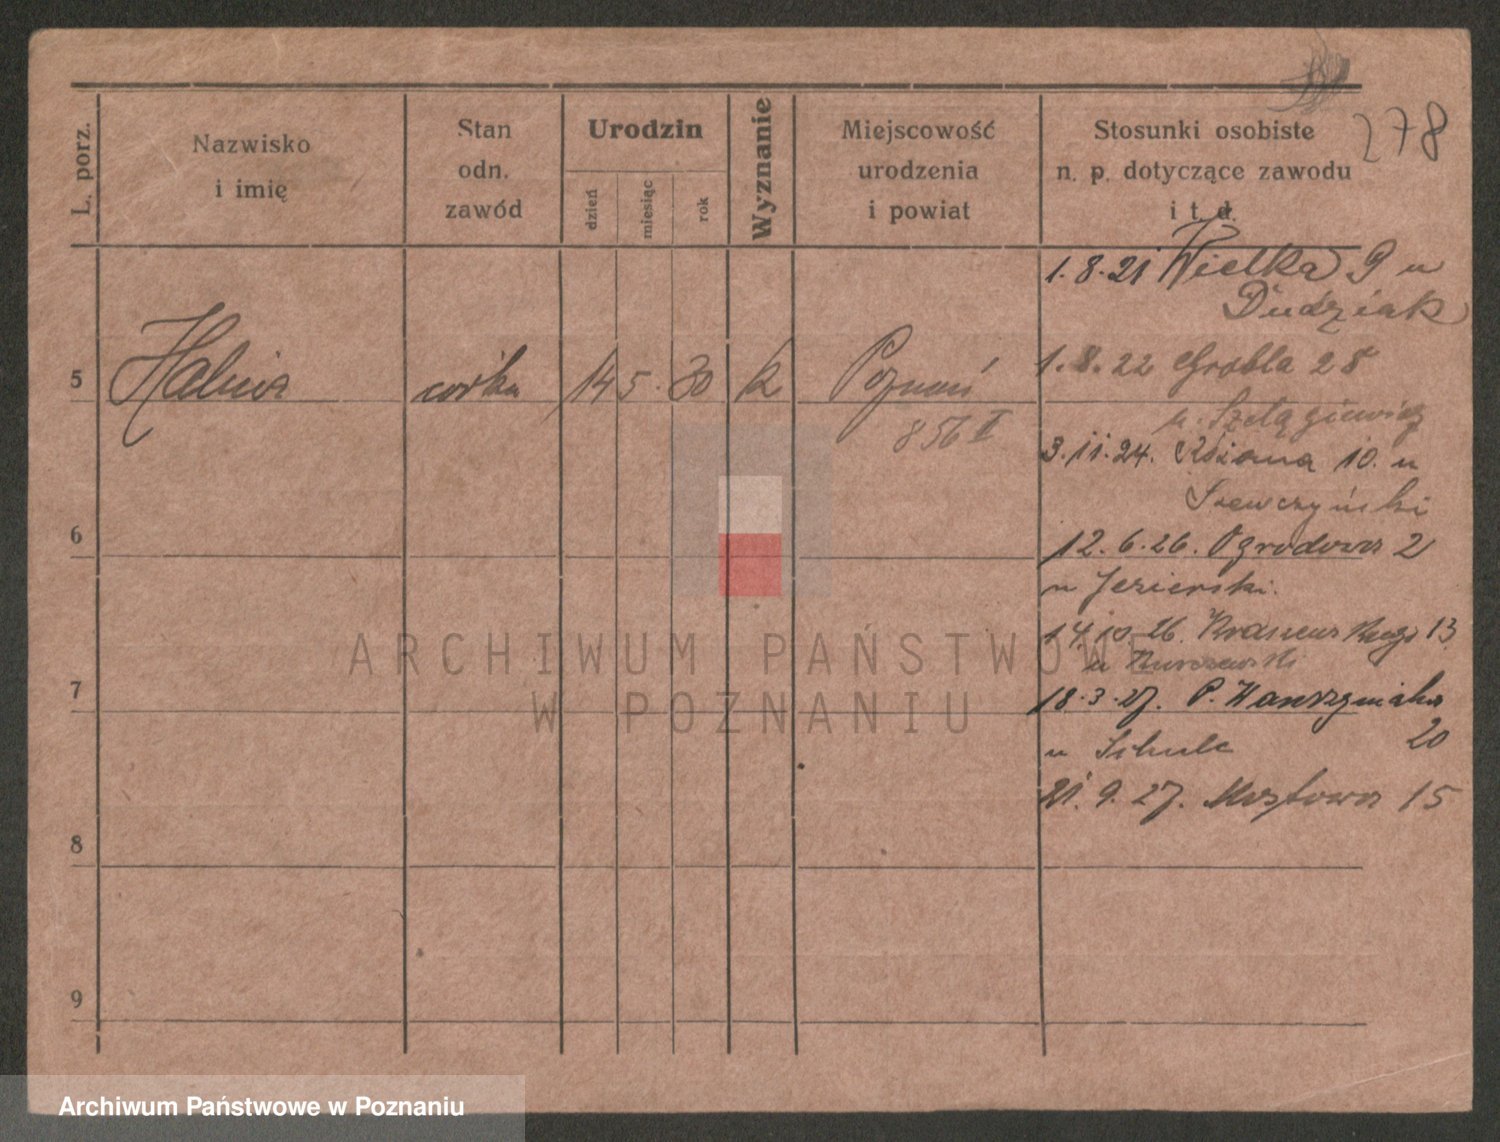 278
L. porz.
Nazwisko
i imię
Stan
odn.
zawód
Urodzin
dzień
miesiąc
rok
Wyznanie
Miejscowość
urodzenia
i powiat
Stosunki osobiste
n. p. dotyczące zawodu
i t. d.
5
Halina
córka
14 5. 30
k
Poznań
856 II
6
7
8
9
1.8.21 Wielka 9 u
Dudziak
1.8.22 Grobla 28
u. Szelągiewicz
3.11.24. Różana 10. u
Szewczyński
12.6.26. Ogrodowa 2
u Jezierski.
14.10.26. 13
u
18.3.27. P. Wawrzyniaka
20
u Schulc
21.9.27. Mostowa 15
ARCHIWUM PAŃSTWOWE
W POZNANIU
Archiwum Państwowe w Poznaniu